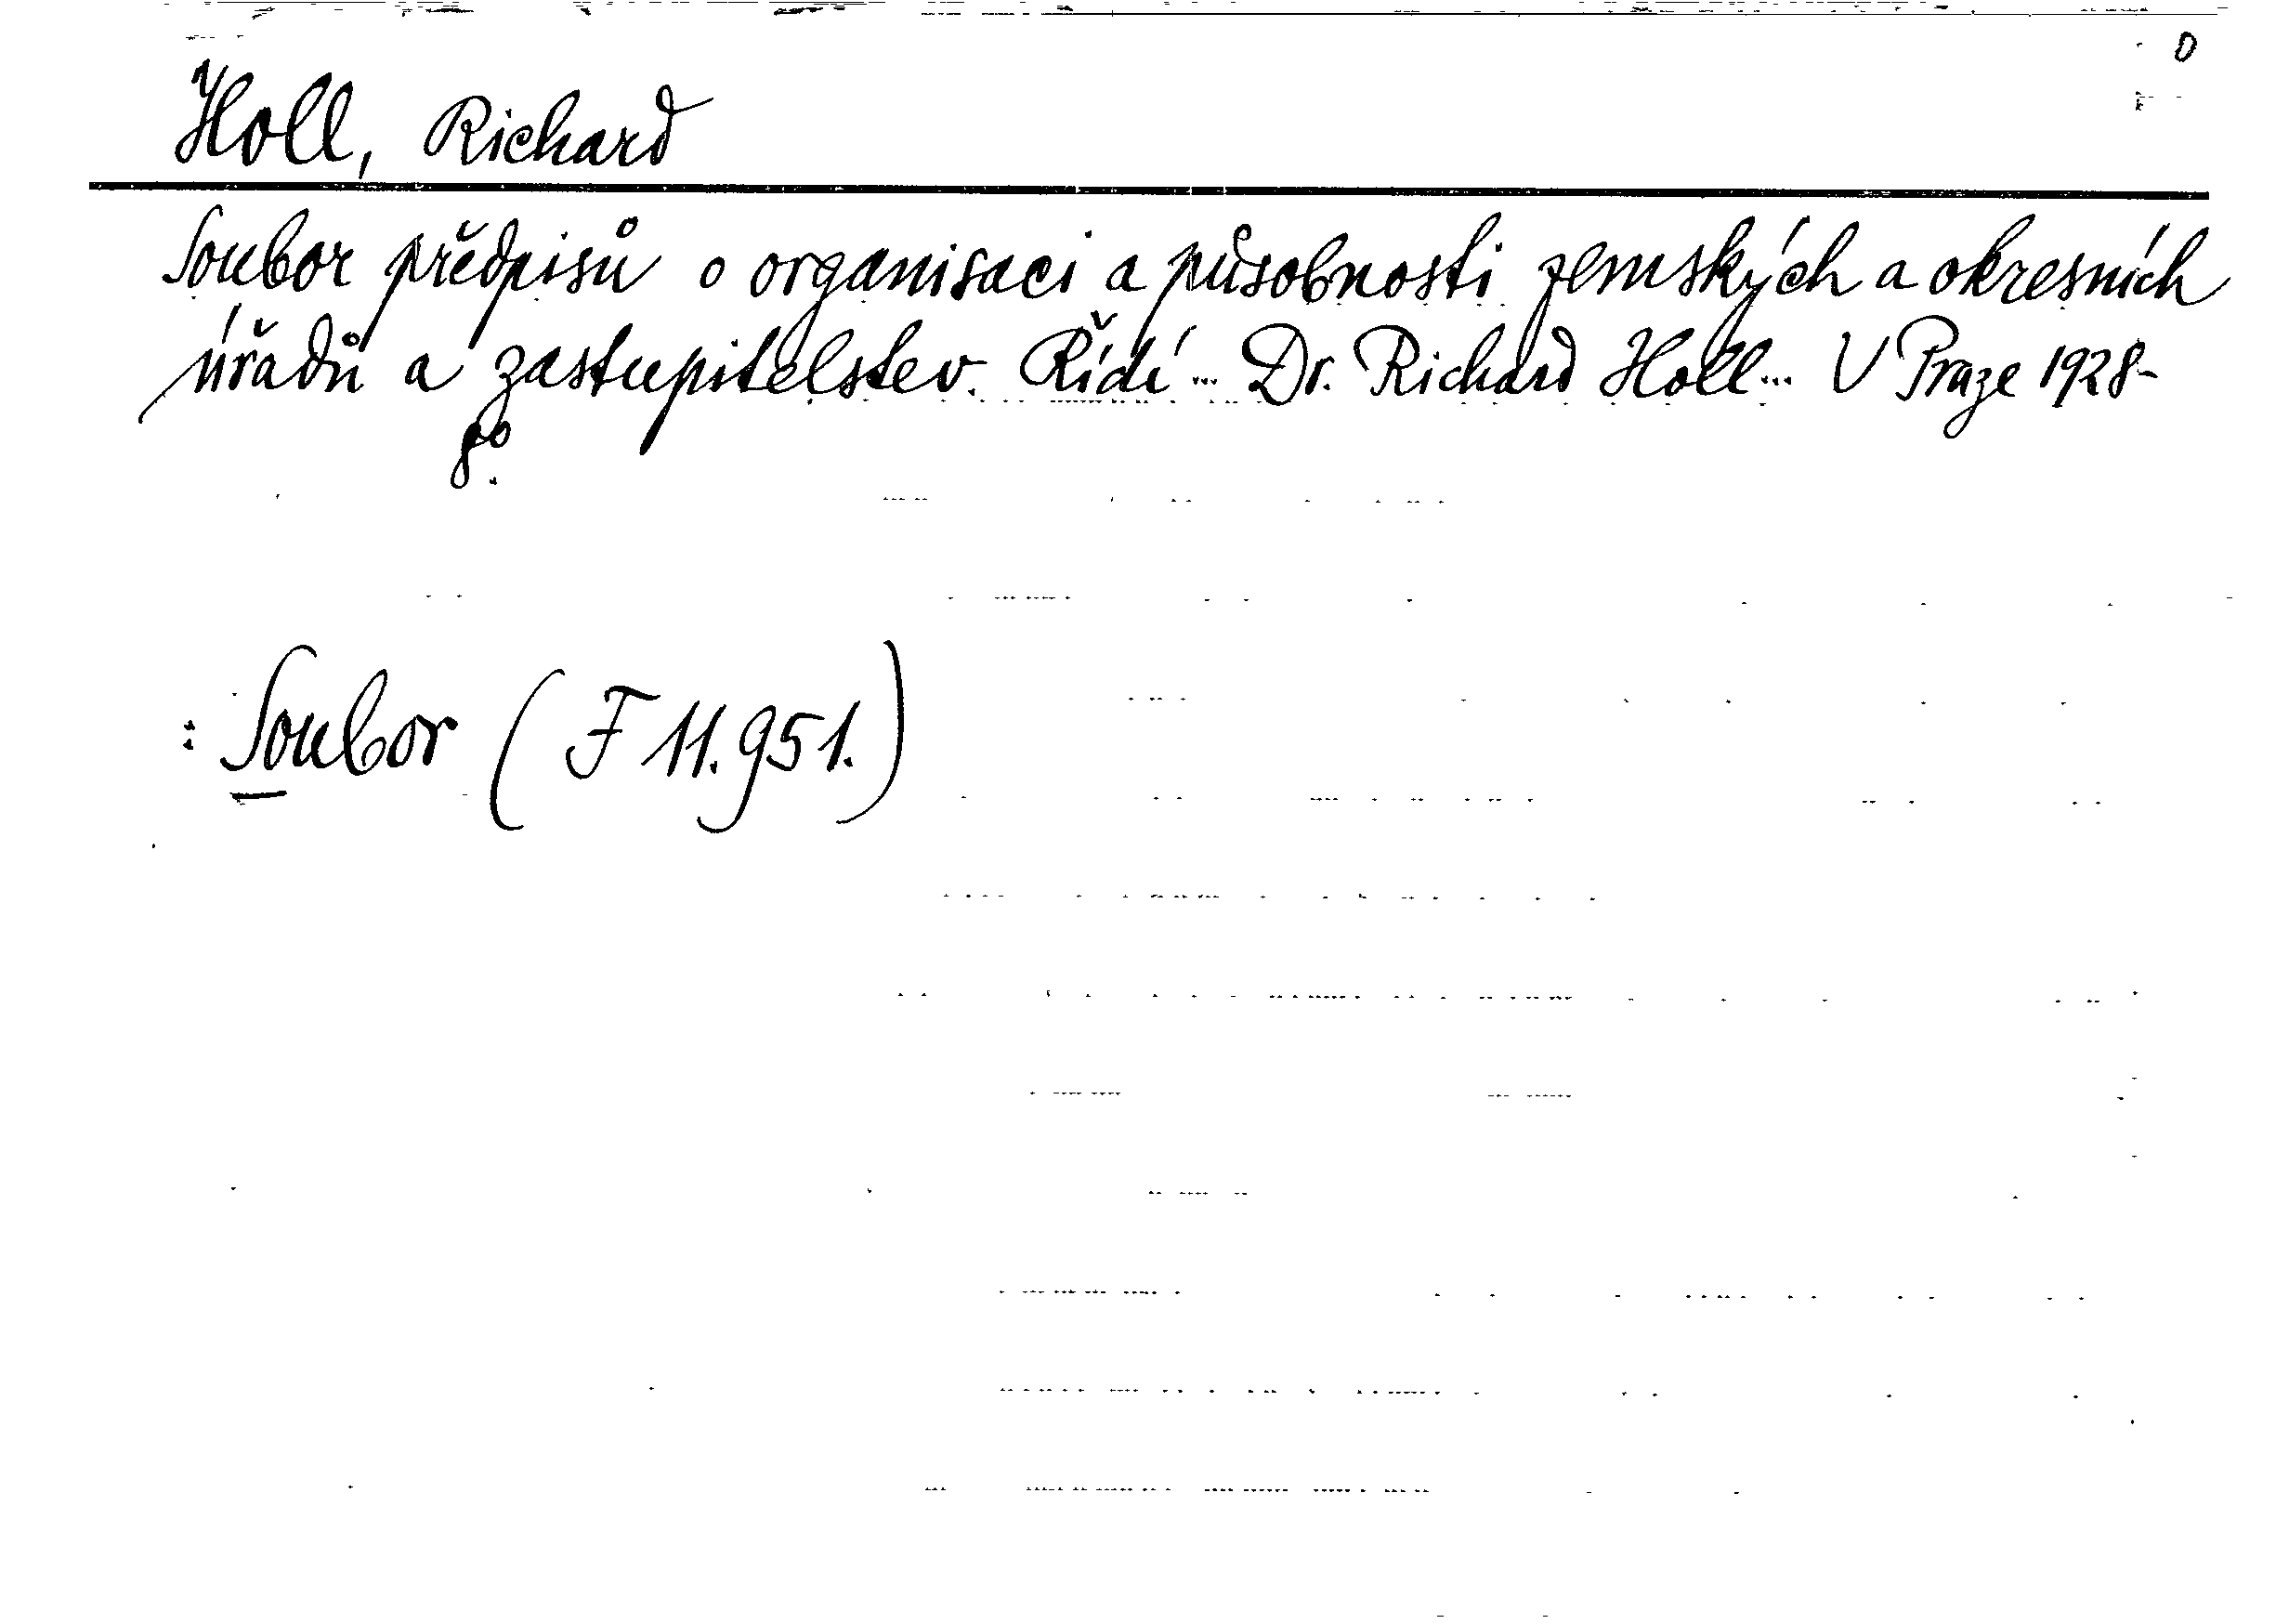 O
Holl, Richard
Soubor předpisů o organisaci a působnosti zemských a okresních
úřadů a zastupitelstev. Řídí ... Dr. Richard Holl ... V Praze 1928-
8°.
: Soubor ( F 11.951.)